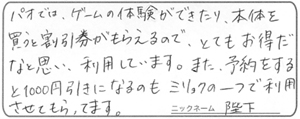 パオでは、ゲームの体験ができたり、本体を
買うと割引券がもらえるので、とてもお得だ
なと思い、利用しています。また、予約をする
と1000円引きになるのもミリョクの一つで利用
させてもらってます。
ニックネーム 陛下